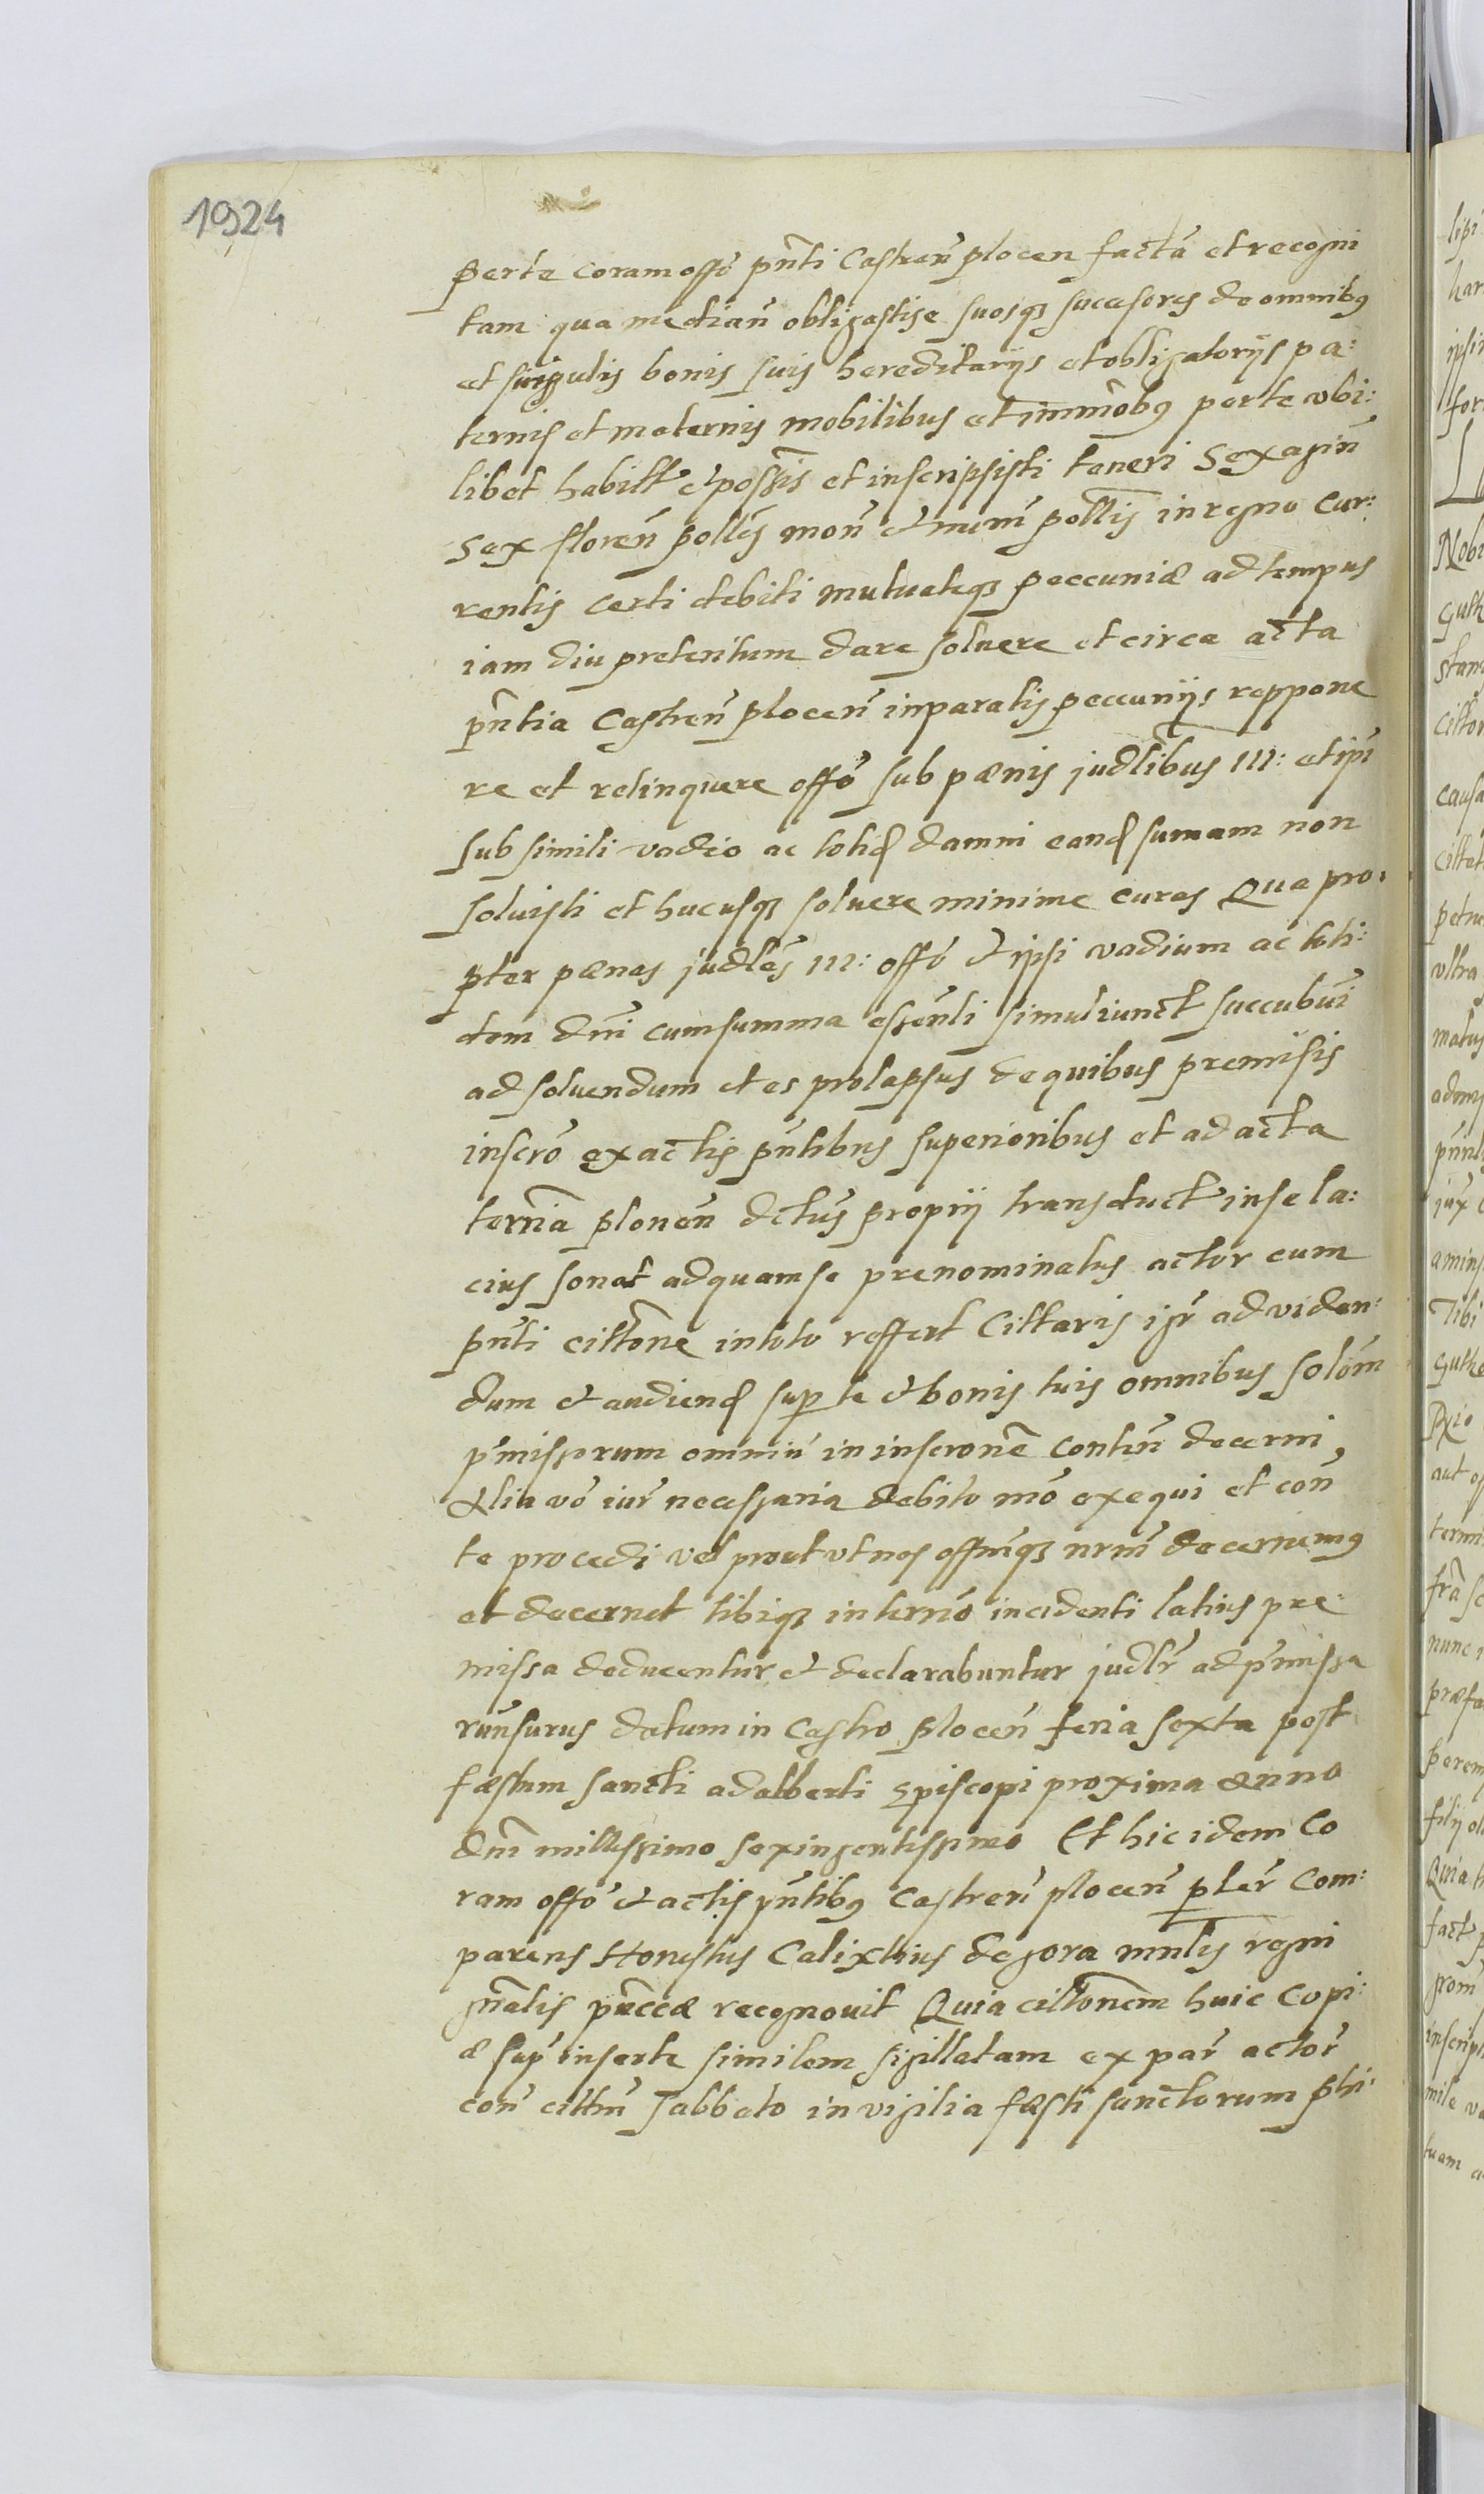 1924
perte coram offo pñti Castreñ plocen factã et recogni
tam qua mediañ obligastise suosq succesores de omnibq
et singulis bonis suis hereditarijs et obligatorijs pa:
ternis et maternis mobilibus et immobq perte vbi:
libet habitt et possis et inscripsisti teneri Sexagiñ
sex floreñ pollis moñ et numi pollis in regno cur:
rentis certi debiti mutuateq peccuniæ ad tempus
iam diu preteritum dare soluere et circa acta
pñtia Castreñ ploceñ in paratis peccunijs reppone
re et relinquere offo sub pænis judlibus III: et ipi
sub simili vadio ac totid damni eand sumam non
soluisti et hucusq soluere minime curas Qua pro:
pter pænas judles III: offo et ipsi vadium ac toti:
dem dñi cum summa essenti simul iunct succubui
ad soluendum et es prolapsus de quibus premisis
inscro ex actis pñtibus superioribus et ad acta
terria ploneñ dctus proprij transduct in se la:
cius sonat ad quam se prenominatus actor cum
pñti cittone in toto reffert Cittaris igr ad viden:
dum et audiend sup te et bonis tuis omnibus solom
pmissorum omniu in inscrone conteñ decerni,
Alia vo iur necessaria debito mo exequi et coñ
te procedi vel prout vt nos offmq nrm decerniemq
et decernet tibiq in termo incidenti latius pre:
missa deducentur et declarabuntur judlr ad pmissa
runsurus datum in Castro ploceñ feria sexta post
fæstum sancti adalberti Episcopi proxima anno
dñi millessimo sexingentissimo Et hic idem Co
ram offo et actis pñtibq Castreñ ploceñ pler Com:
parens Honestus Calixtius de gora mnlis regni
gñalis præcca recognouit Quia cittonem huic Copi:
æ sup inserte similem sigillatam ex par actor
coñ cittm sabbato in vigilia fæsti sanctorum phi: